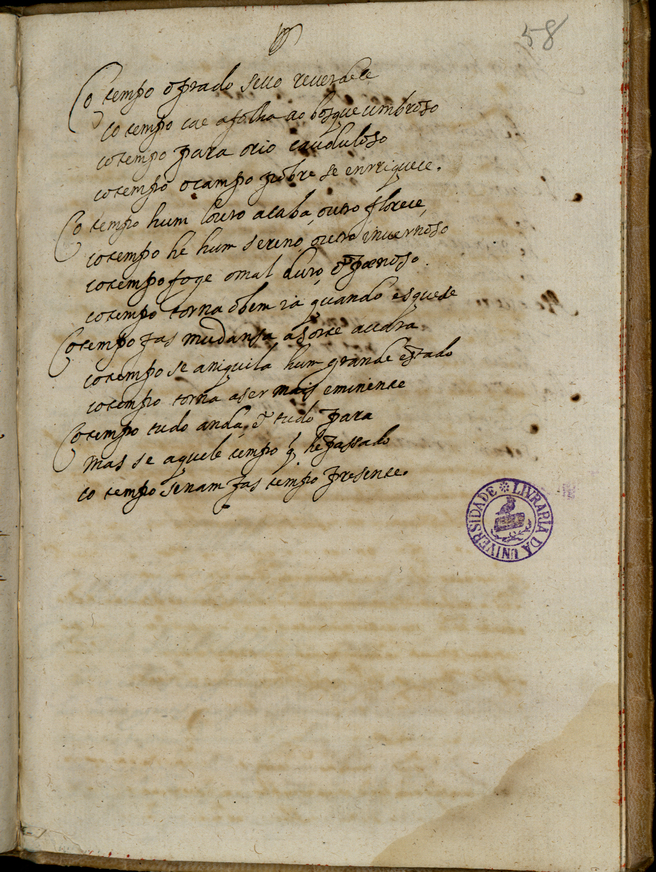 58
Co tempo o prado seco reverdece
co tempo cae a folha ao bosque umbroso
co tempo para o rio cauduloso
co tempo o campo pobre se enrriquece.
Co tempo hum louro acaba, outro florece,
co tempo he hum sereno, outro invernoso
co tempo foge o mal duro, e penoso.
co tempo torna o bem ia quando esquese
Co tempo fas mudansa a sorte avara
co tempo se aniquila hum grande estado
co tempo torna a ser mais eminente
Co tempo tudo anda, e tudo para
mas se aquele tempo q he passado
co tempo se nam fas tempo presente.
LIVRARIA DA UNIVERSIDADE